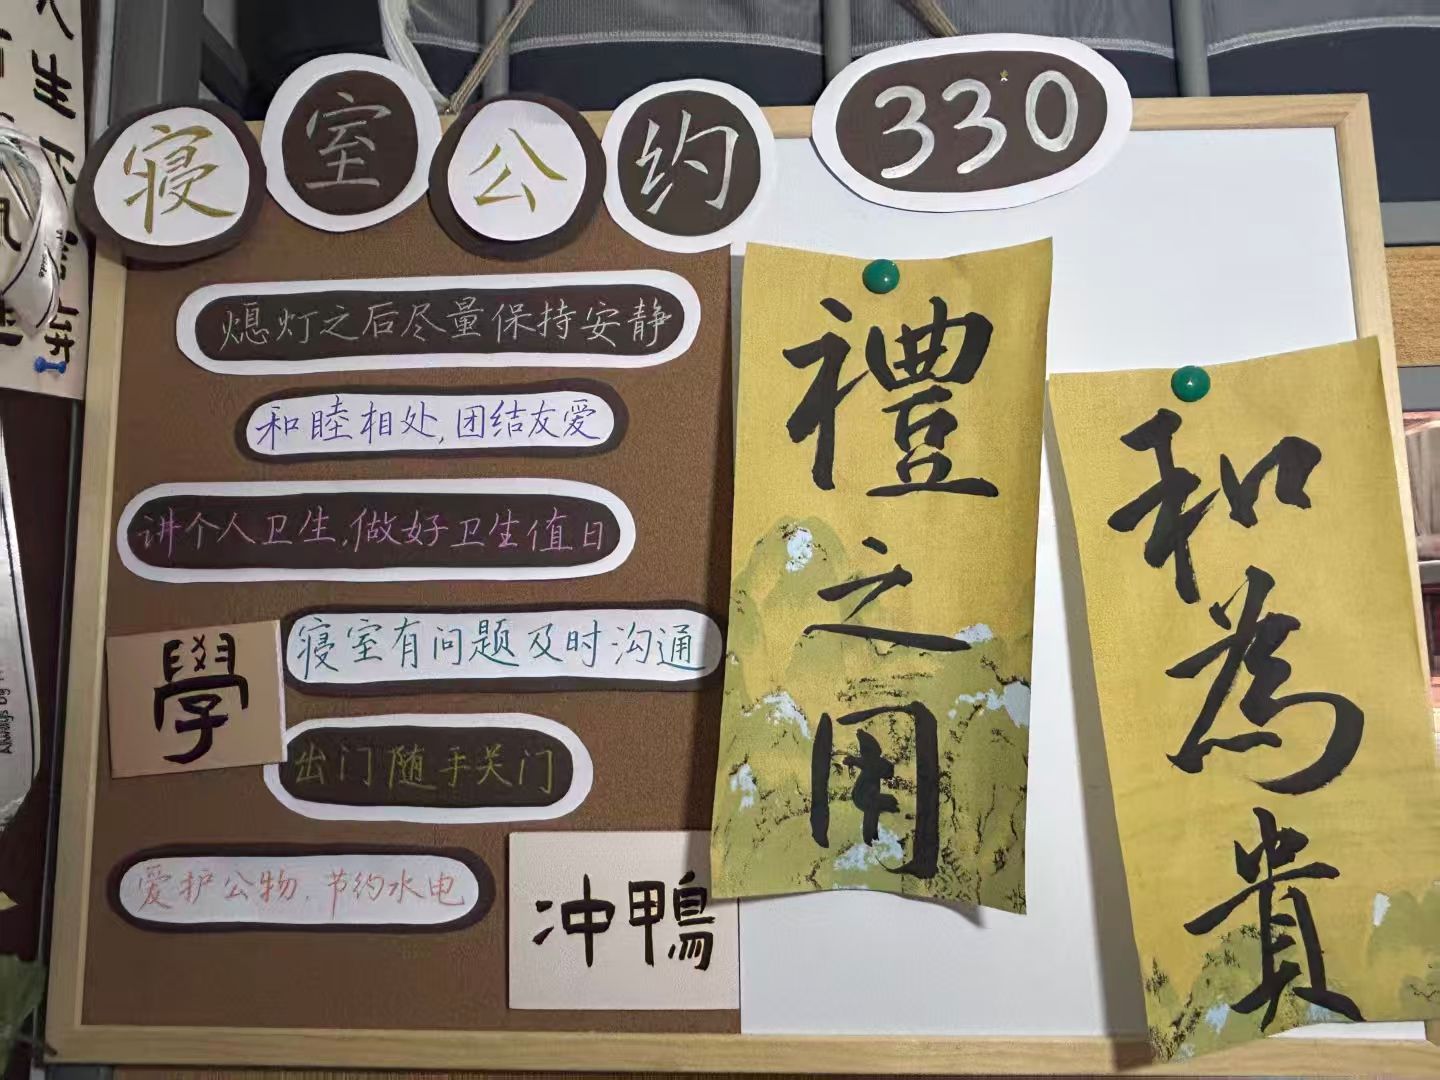 寝室公约
330
熄灯之后尽量保持安静
和睦相处,团结友爱
讲个人卫生,做好卫生值日
寝室有问题及时沟通
學
出门随手关门
爱护公物,节约水电
冲鴨
禮之用
和為貴
人生不言弃
Always by